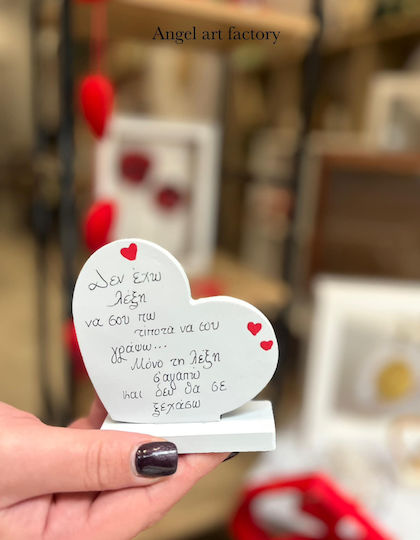 Angel art factory
Δεν έχω
λέξη
να σου πω
τίποτα να σου
γράψω...
Μόνο τη λέξη
σ'αγαπώ
και δεν θα σε
ξεχάσω